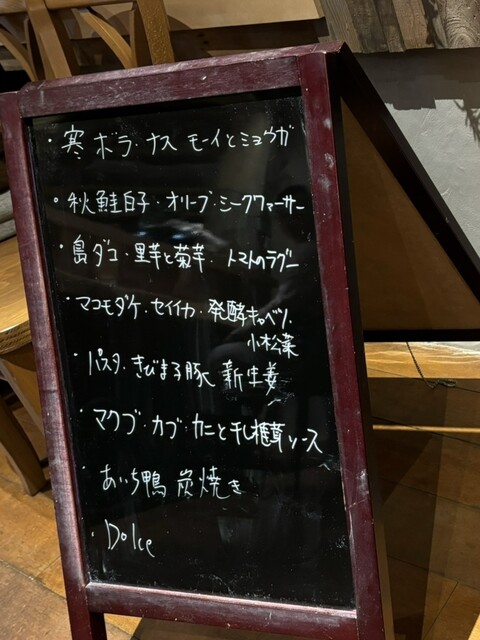 ・寒ボラ・ナス モーイとミョウガ
・秋鮭白子・オリーブ・シークワァーサー
・島ダコ・里芋と菊芋・トマトのラグー
・マコモダケ・セイイカ・発酵キャベツ、
小松菜
・パスタ・きびまる豚 新生姜
・マクブ・カブ・カニと干し椎茸ソース
・あいち鴨 炭焼き
・Dolce